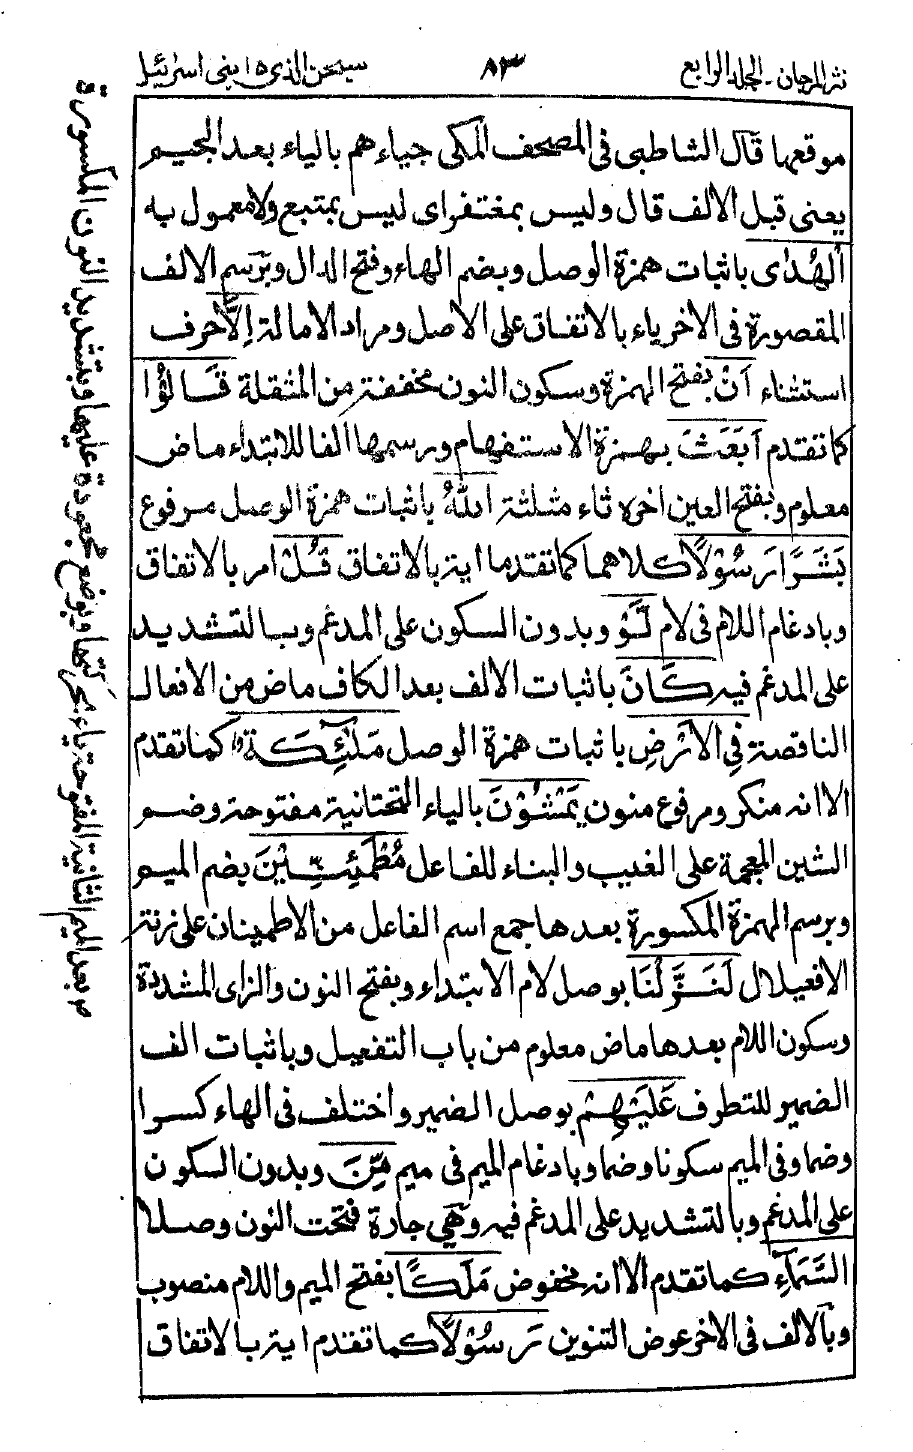 نثر المرجان ـ الجلد الرابع
٨٣
سبحن الذى ١٥ بنى اسرائيل
موقعها قال الشاطبى فى المصحف المكى جياءهم بالياء بعد الجيم
يعنى قبل الالف قال وليس بمغتفر اى ليس بمتبع ولا معمول به
اَلْهُدٰى باثبات همزة الوصل وبضم الهاء وفتح الدال وبرسم الالف
المقصورة فى الاخر ياء بالاتفاق على الاصل ومراد الامالة اِلَّا حرف
استثناء اَنْ بفتح الهمزة وسكون النون مخففة من المثقلة قَالُوْٓا
كما تقدم اَبَعَثَ بهمزة الاستفهام ورسمها الفا للابتداء ماض
معلوم وبفتح العين اخره ثاء مثلثة اللّٰهُ باثبات همزة الوصل مرفوع
بَشَرًا رَسُوْلًا كلاهما كما تقدما اية بالاتفاق قُلْ امر بالاتفاق
وبادغام اللام فى لام لَّوْ وبدون السكون على المدغم وبالتشديد
على المدغم فيه كَانَ باثبات الالف بعد الكاف ماض من الافعال
الناقصة فِي الْاَرْضِ باثبات همزة الوصل مَلٰٓئِكَةٌ كما تقدم
الا انه منكر ومرفوع منون يَمْشُوْنَ بالياء التحتانية مفتوحة وضم
الشين المعجمة على الغيب والبناء للفاعل مُطْمَئِنِّيْنَ بضم الميم
وبرسم الهمزة المكسورة بعدها جمع اسم الفاعل من الاطمينان على زنة
الافعيلال لَنَزَّلْنَا بوصل لام الابتداء وبفتح النون والزاى المشددة
وسكون اللام بعدها ماض معلوم من باب التفعيل وباثبات الف
الضمير للتطرف عَلَيْهِمْ بوصل الضمير واختلف فى الهاء كسرا
وضما وفى الميم سكونا وضما وبادغام الميم فى ميم مِّنَ وبدون السكون
على المدغم وبالتشديد على المدغم فيه وهى جارة فتحت النون وصلا
السَّمَآءِ كما تقدم الا انه مخفوض مَلَكًا بفتح الميم واللام منصوب
وبالالف فى الاخر عوض التنوين رَسُوْلًا كما تقدم اية بالاتفاق
بعد الميم الثانية المفتوحة ياء بحركتها وبوضع مجعودة عليها وبتشديد النون المكسورة